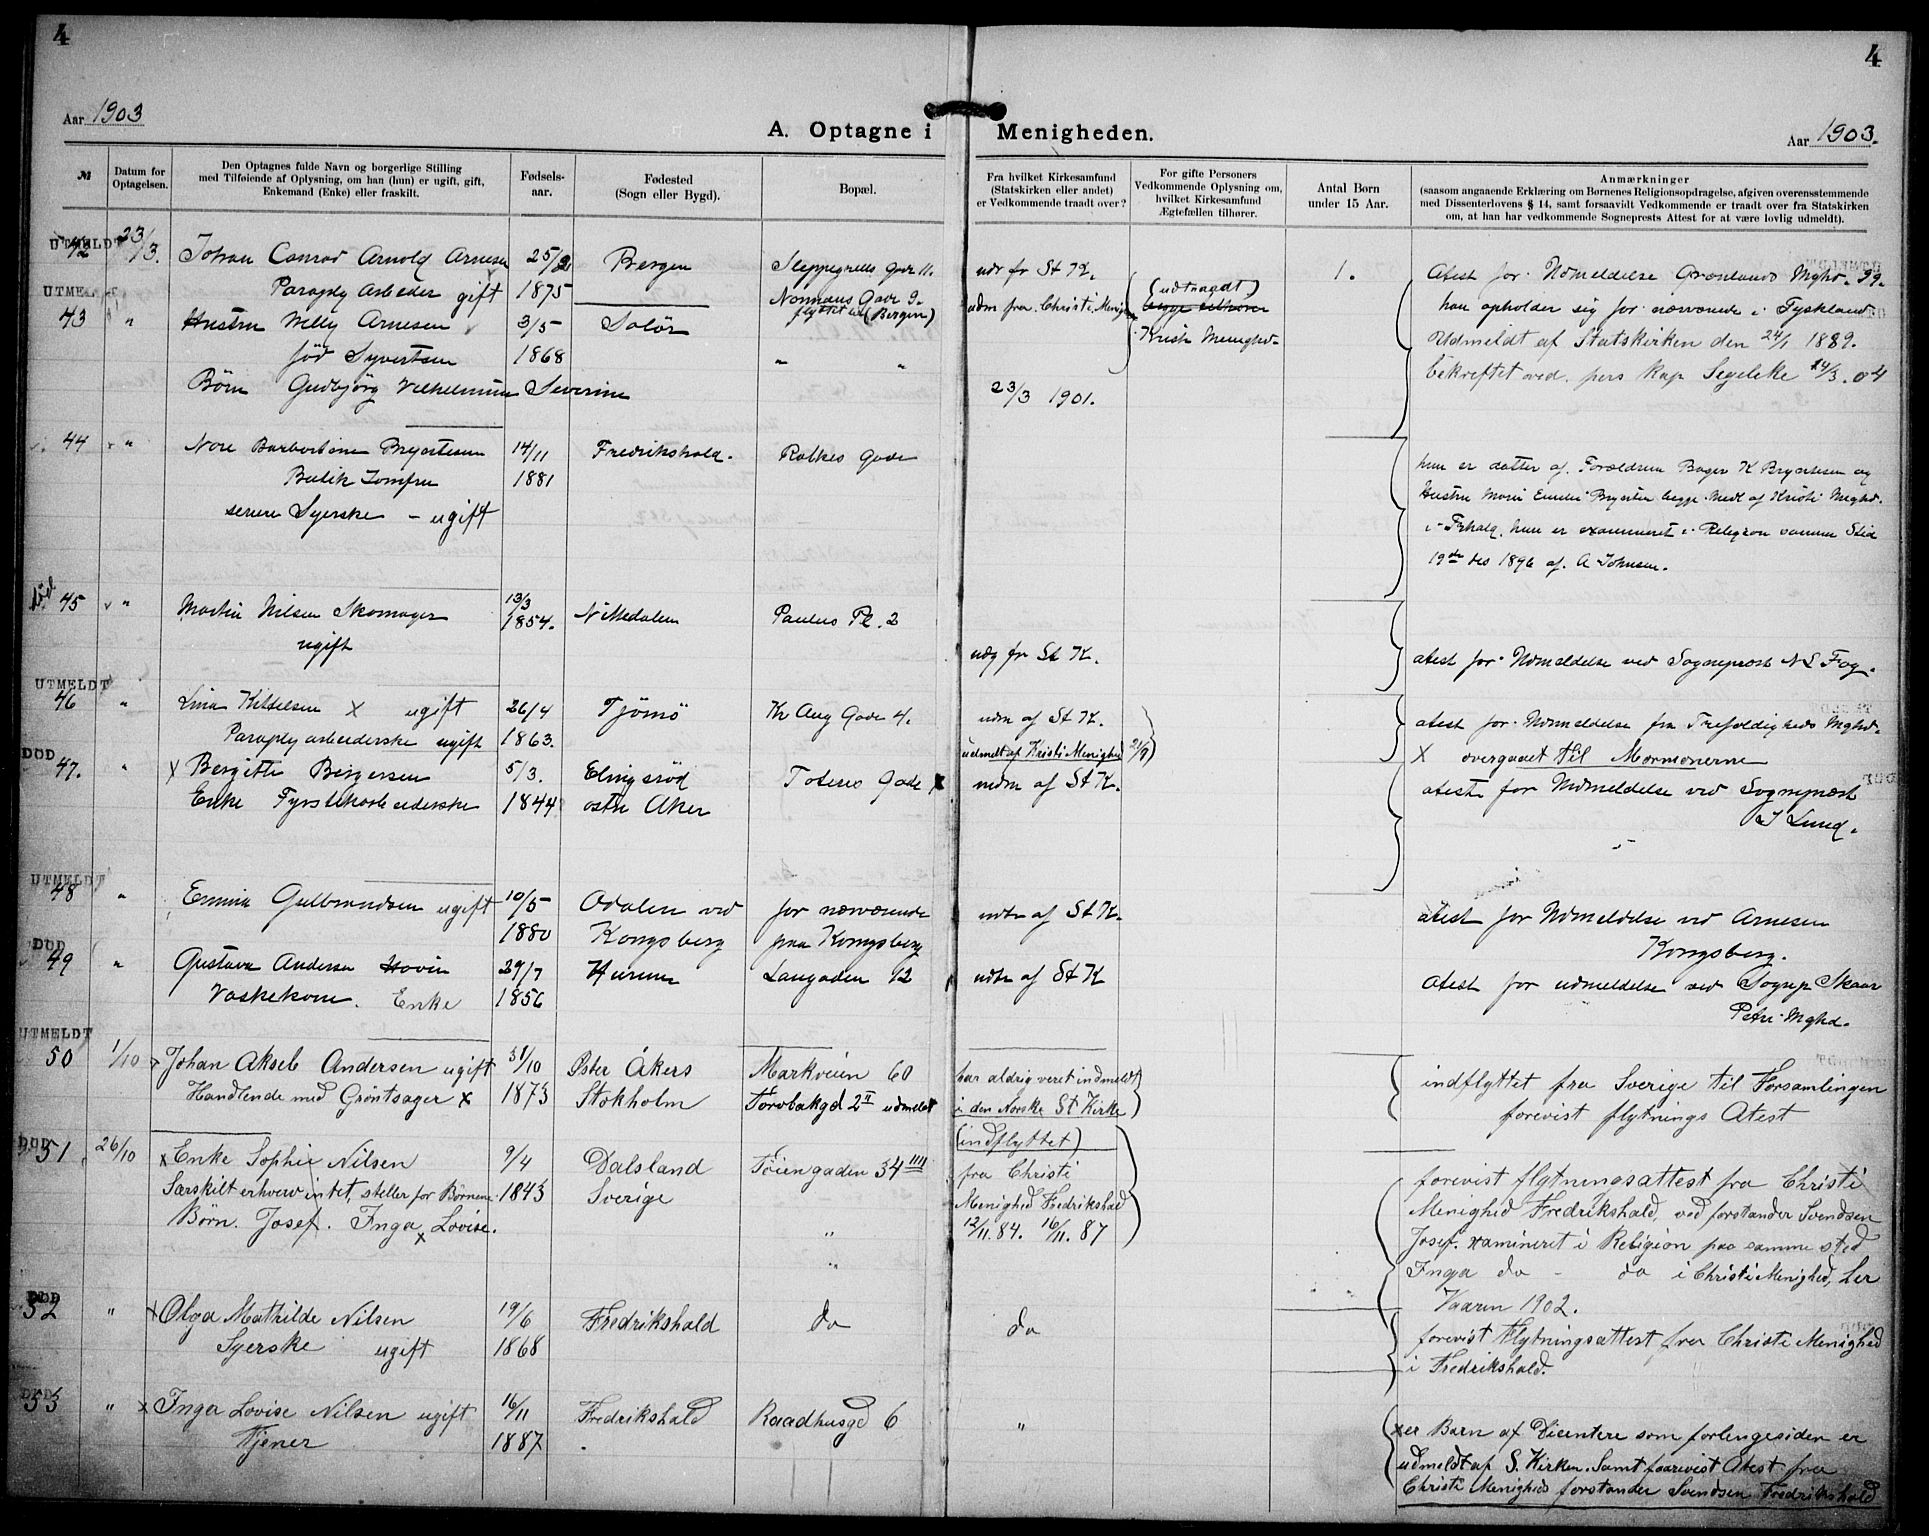 4
4
Aar 1903
A. Optagne i Menigheden.
Aar 1903.
№
Datum for Optagelsen.
Den Optagnes fulde Navn og borgerlige Stilling
med Tilføiende af Oplysning, om han (hun) er ugift, gift,
Enkemand (Enke) eller fraskilt.
Fødselsaar.
Fødested
(Sogn eller Bygd).
Bopæl.
Fra hvilket Kirkesamfund
(Statskirken eller andet)
er Vedkommende traadt over?
For gifte Personers
Vedkommende Oplysning om,
hvilket Kirkesamfund
Ægtefællen tilhører.
Antal Børn
under 15 Aar.
Anmærkninger
(saasom angaaende Erklæring om Børnenes Religionsopdragelse, afgiven overensstemmende
med Dissenterlovens § 14, samt forsaavidt Vedkommende er traadt over fra Statskirken
om, at han har vedkommende Sogneprests Attest for at være lovlig udmeldt).
UTMELDT
42 23/3. Johan Conrad Arnold Arnesen Bergen
Paraply Arbeder gift 1875
1.
Atest for Udmeldelse Grønlands Mghd. 99.
han opholder sig for nærværende i Tyskland
Udmeldt af Statskirken den 24/1 1889.
bekreftet ved pers Kap 14/3. 04
UTMELDT
43 " Hustru Arnesen 3/5 Solör
født Syvertsen 1868 " "
Normans Gade 9.
flyttet til (Bergen)
udm fra Christi Menighed
(udtraadt)
Krist Menighd
Børn Gudbjörg Vilhelmine Severine 23/3 1901.
44 " Brynstesen 14/11 Fredrikshald.
Butik Jomfru 1881
senere Syerske - ugift
hun er datter af Forældrene
Hustru begge Medl af Kristi Meghd.
hun er i Religion samme Sted
19de des 1896 af. A Johnsen.
død
45 " Martin Nilsen Skomager 13/3 1854. Nittedalen Paulus Pl. 2
ugift
udg fr St K.
atest for Udmeldelse ved Sogneprest N S Fog.
UTMELDT
46 " Lina Kittelsen X ugift 26/4 Tjömö Kr Aug Gade 4. udm af St K.
Paraply arbeiderske ugift 1863.
udmelt af Kristi Menighed 21/9)
atest for Udmeldelse fra Trefoldigheds Mghd.
X overgaaet til Mormonerne
DØD
47. " X Bergitte Birgersen 5/3. Elingsrød Gade X udm af St K.
Enke Fyrstikarbeiderske 1844 ostre Aker
atest for Udmeldelse ved Sogneprest
Lund.
UTMELDT
48 " Emma Gulbrandsen ugift 10/5 Odalen ved for nærværende udtr af St K.
1880 Kongsberg paa Kongsberg
atest for Udmeldelse ved Arnesen
Kongsberg.
DØD
49 " Gustava Andersen Hovin 29/7 Hurum Langaden 12 udtr af St K
Vaskekone. Enke 1856
atest for udmeldelse ved Sognp Skaar
Petri Mghd.
UTMELDT
50 1/10 Johan Aksel Andersen ugift 31/10 Øster Åkers Markveien 60 har aldrig veret indmeldt
Handlende med Grøntsager x 1873 Stokholm Torvbakgd 2 II udmeldt i den Norske St Kirke
indflyttet fra Sverige til Forsamlingen
forevist flytnings Atest
DØD
51 26/10 x Enke Sophie Nilsen 9/4 Dalsland Töiengaden 34 IIII
Særskilt erhverv intet, steller for Börnene 1843 Sverige
Börn. Josef. Inga x Lovise. "
(indflyttet)
fra Christi
Menighed Fredrikshald
12/11. 84. 16/11. 87
forevist flytningsattest fra Christi
Menighed Fredrikshald, ved forstander Svendsen
Josef. xamineret i Religion paa samme sted
Inga do - do i Christi Menighed, her
Vaaren 1902.
DØD
52 " x Olga Mathilde Nilsen 19/6 Fredrikshald do do
Syerske ugift 1868
forevist Flytningsattest fra Christi Menighed
i Fredrikshald.
DØD
53 " x Inga Lovise Nilsen ugift 16/11 Fredrikshald Raadhusgd 6 "
Tjener 1887
x er Barn af Dicentere som forlengesiden er
udmeldt af S. Kirken. Samt foarevist Atest fra
Christi Menigheds forstander Svendsen Fredrikshald